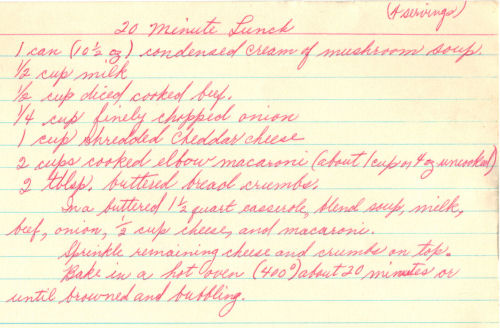 20 Minute Lunch (4 servings)
1 can (10 1/2 oz) condensed cream of mushroom soup.
1/2 cup milk
1/2 cup diced cooked beef.
1/4 cup finely chopped onion
1 cup shredded Cheddar cheese
2 cups cooked elbow macaroni (about 1 cup or 4 oz uncooked)
2 tblsp. buttered bread crumbs.
In a buttered 1 1/2 quart casserole, blend soup, milk,
beef, onion, 1/2 cup cheese, and macaroni.
Sprinkle remaining cheese and crumbs on top.
Bake in a hot oven (400°) about 20 minutes or
until browned and bubbling.